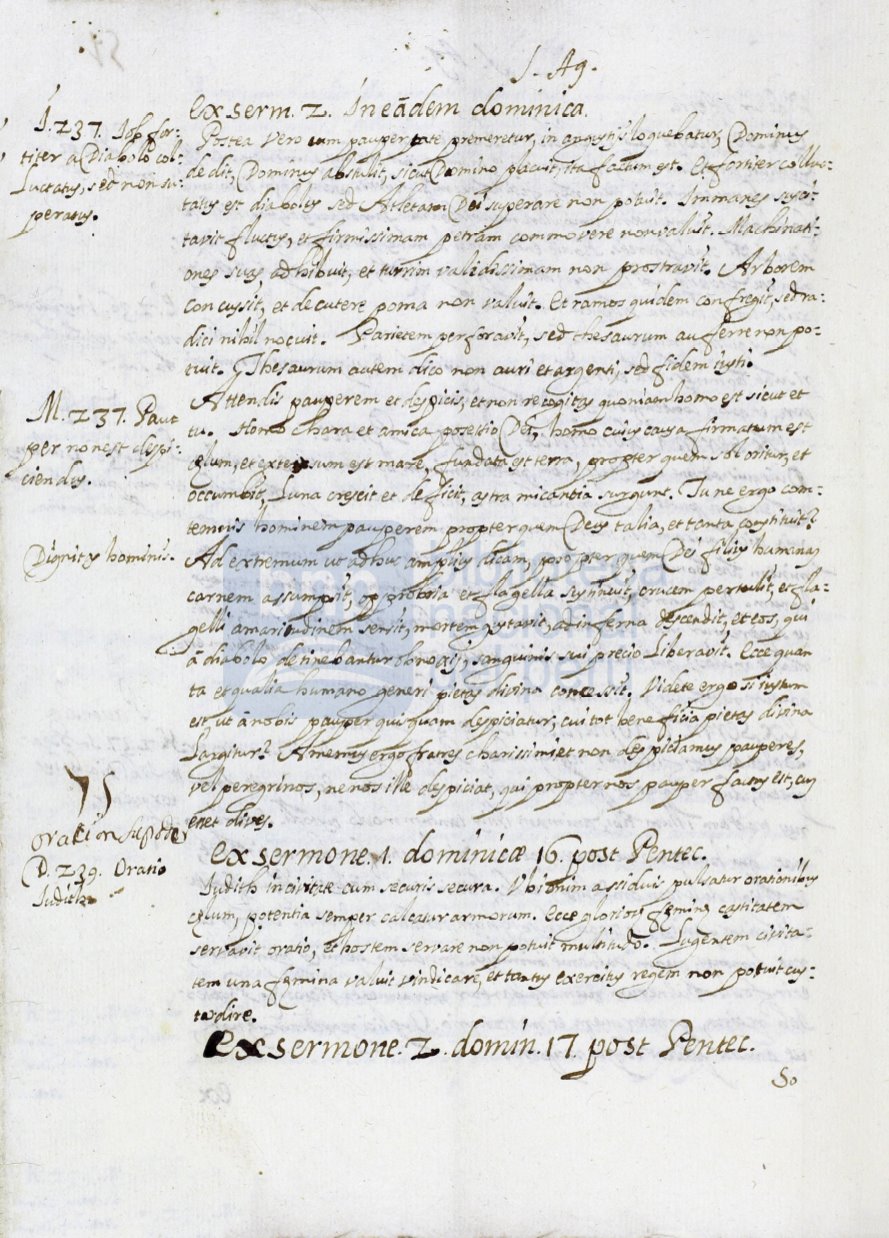 S. Ag.
Ex serm. 2. In eādem dominica.
I. 237. Iob for-
titer à Diabolo col-
Luctatus, sed non su-
peratus.
Postea vero cum paupertate premeretur, in angustijs loquebatur, Dominus
dedit, Dominus abstulit, sicut Domino placuit, ita factum est. Et fortiter colluc-
tatus est diabolus sed Atletam Dei superare non potuit. Immanes susci-
tavit fluctus, et firmissimam petram commovere non valuit. Machinati-
ones suas adhibuit, et turrim validissimam non prostravit. Arborem
concussit, et decutere poma non valuit. Et ramos quidem confregit, sed ra-
dici nihil nocuit. Parietem perforavit, sed thesaurum auferre non po-
tuit. Thesaurum autem dico non auri et argenti, sed fidem iusti.
M. 237. Paup
per non est despi-
ciendus.
Attendis pauperem et despicis, et non recogitas quoniam homo est sicut et
tu. Homo chara et amica possesio Dei, homo cuius causa firmatum est
cęlum, et extensum est mare, fundata est terra, propter quem sol oritur, et
occumbit, Luna crescit et deficit, astra micantia surgunt. Tu ne ergo con-
temnis hominem pauperem propter quem Deus talia, et tanta constituit?
Dignitas hominis.
Ad extremum ut adhuc amplius dicam, propter quem Dei filius humanam
carnem assumpsit, opprobria et flagella sustinuit, crucem pertulit, et fla-
gelli amaritudinem sensit, mortem gustavit, ad inferna descendit, et eos, qui
à diabolo detinebantur obnoxij, sanguinis sui precio Liberavit. Ecce quan
ta et qualia humano generi pietas divina concessit. Videte ergo si iustum
est ut à nobis pauper quisquam despiciatur, cui tot beneficia pietas divina
Largitur? Amemus ergo fratres charissimi et non despiciamus pauperes,
vel peregrinos, ne nos ille despiciat, qui propter nos pauper factus est, cum
esset dives.
75
oracion su poder
D. 239. Oratio
Iudith
Ex sermone. 1. dominicæ 16. post Pentec.
Iudith in civitate cum securis secura. Ubi enim assiduis pulsatur orationibus
cęlum, potentia semper calcatur armorum. Ecce gloriosę feminę castitatem
servavit oratio, et hostem servare non potuit multitudo. Lugentem civita-
tem una femina valuit vindicare, et tantus exercitus regem non potuit cus-
todire.
Ex sermone. 2. domin. 17. post Pentec.
So
biblioteca
nacional
del perú